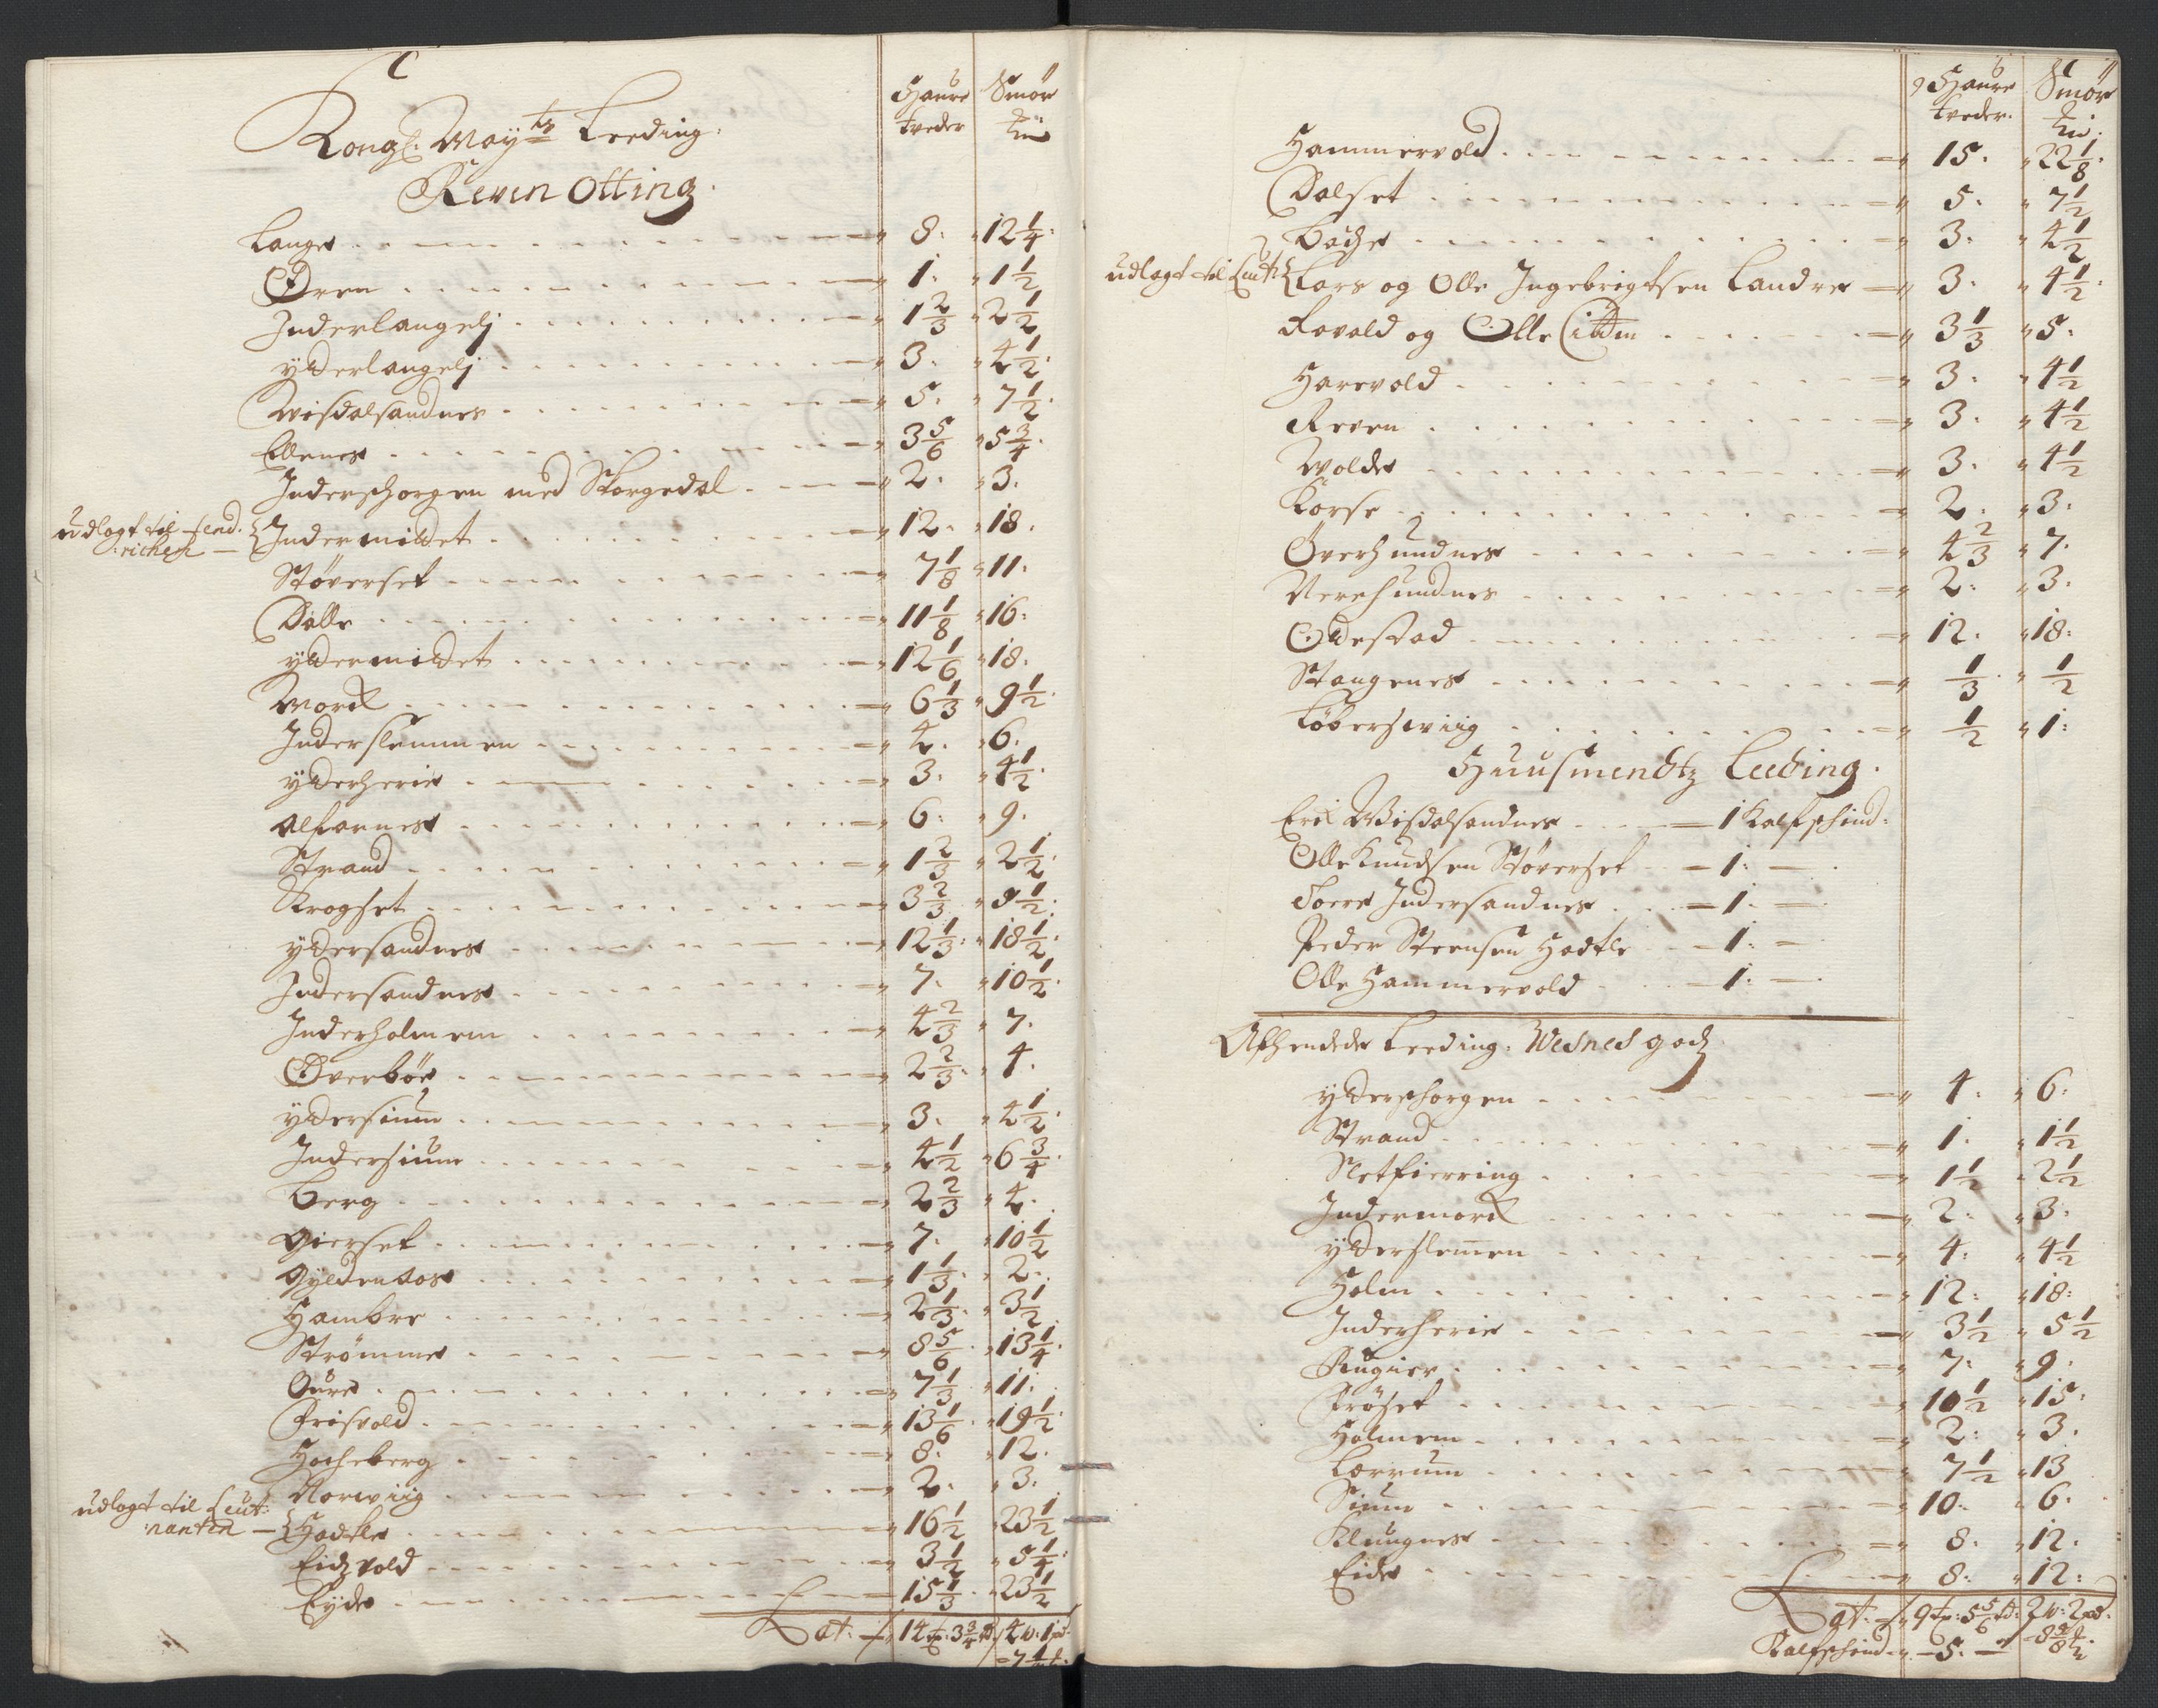 Kongl: May.ts Leeding:
Reven Otting.
Haure Smør
tveder
Lange 8: 12 1/4:
Øren 1: 1 1/2
Inderlangelj 1 2/3 2 1/2
yderlangelj 3: 4 1/2:
Wisdalsandnes 5: 7 1/2:
Ellenes 3 5/6 5 3/4:
Inderschorgen med Storgedal 2: 3.
udlagt til fend:
:richen Indermidet 12: 18.
Støverset 7 1/8 11:
Dalle 11 1/8 16:
ydermidet 12 1/6 18.
Morck 6 1/3 9 1/2:
Inderslemmen 4: 6.
yderherie 3: 4 1/2:
Alfarnes 6: 9.
Strand 1 2/3 2 1/2:
Krogset 3 2/3 9 1/2:
ydersandnes 12 1/3: 18 1/2:
Indersandnes 7: 10 1/2:
Inderholmem 4 2/3 7.
Øverbøe 2 2/3: 4.
ydersium 3: 4 1/2:
Indersium 4 1/2 6 3/4:
Berg 2 2/3 4.
Gierset 7: 10 1/2
Gyldenaas 1 1/3: 2:
Hambre 2 1/3: 3 1/2
Strømme 8 5/6: 13 1/4:
Oure 7 1/3 11:
Frisvold 13 1/6: 19 1/2:
Hocheberg 8: 12.
Norwiig 2: 3:
udlagt til Leut:
:nanten Hadtle 16 1/2 23 1/2
Eidzvold 3 1/2 5 1/4:
Eyde 15 1/3 23 1/2
Lat: 14 3 3/4 4 w: 1 pd:
Haure Smør
tveder.
Hammervold 15: 22 1/8:
Dalset 5: 7 1/2
Bache 3: 4 1/2
udlagt til Leut: Lars og Olle Ingebrigtsen Landre 3: 4 1/2:
Ravald og Olle 3 1/3 5:
Harevold 3: 4 1/2
Reven 3: 4 1/2
Wolde 3: 4 1/2
Korse 2: 3:
Øverhundnes 4 2/3 7.
Nerehundnes 2: 3:
Odestad 12: 18:
Stangenes 1/3 1/2
Løberswiig 1/2 1:
Huusmendtz Leeding.
Erik Wisdalsandnes 1 Kalfschind:
Olle Knudsen Støverset 1:
Toere Indersandnes 1:
Peder Steensen Hadtle 1:
Olle Hammervold 1:
Afhendede Leeding. Wesnes godz
yderschorgen 4: 6:
Strand 1: 1 1/2
Sletfierring 1 1/2 2 1/2
Indermorck 2: 3:
yderslemen 4: 4 1/2
Holm 12: 18:
Inderherie 3 1/2 5 1/2
7: 9:
Frøset 10 1/2 15:
Holmem 2: 3.
Lærrum 7 1/2 13
Sium 10: 6:
Klungnes 8: 12.
Eide 8: 12:
Lat: 9 5 5/6 2 w: 2 pd:
Kalfschind 5: